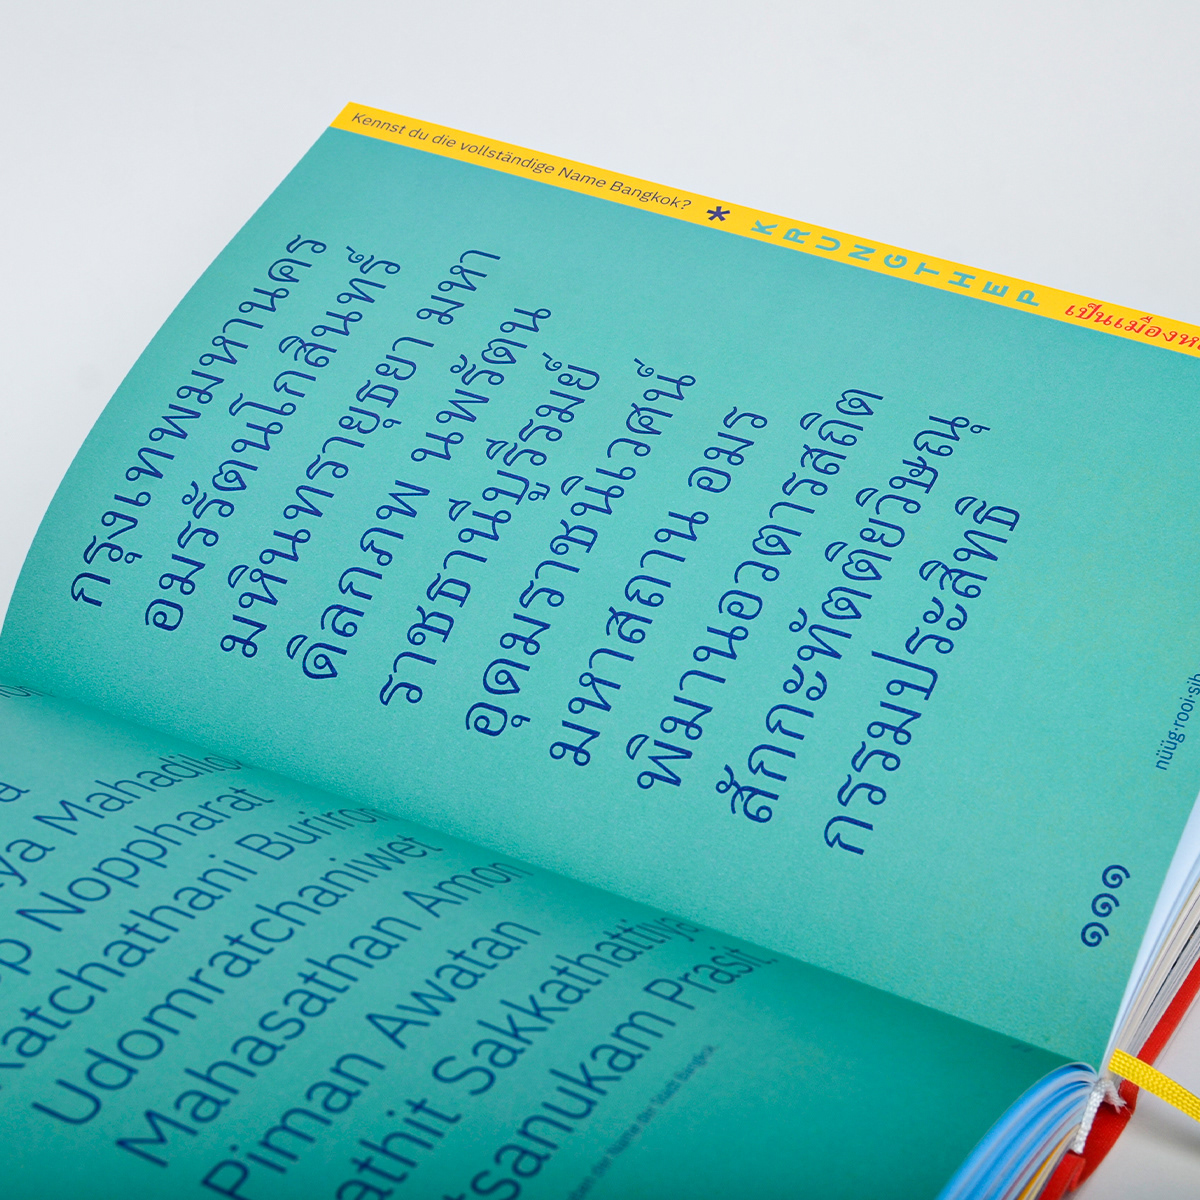 Kennst du die vollständige Name Bangkok? * KRUNGTHEP เป็นเมือง
กรุงเทพมหานคร
อมรรัตนโกสินทร์
มหินทรายุธยา มหา
ดิลกภพ นพรัตน
ราชธานีบูรีรมย์
อุดมราชนิเวศน์
มหาสถาน อมร
พิมานอวตารสถิต
สักกะทัตติยวิษณุ
กรรมประสิทธิ
nüüg·rooi·sib
๑๑๑
Noppharat
Udomratchaniwet
Mahasathan Amon
Piman Awatan
Sakkathattiya
Prasit.